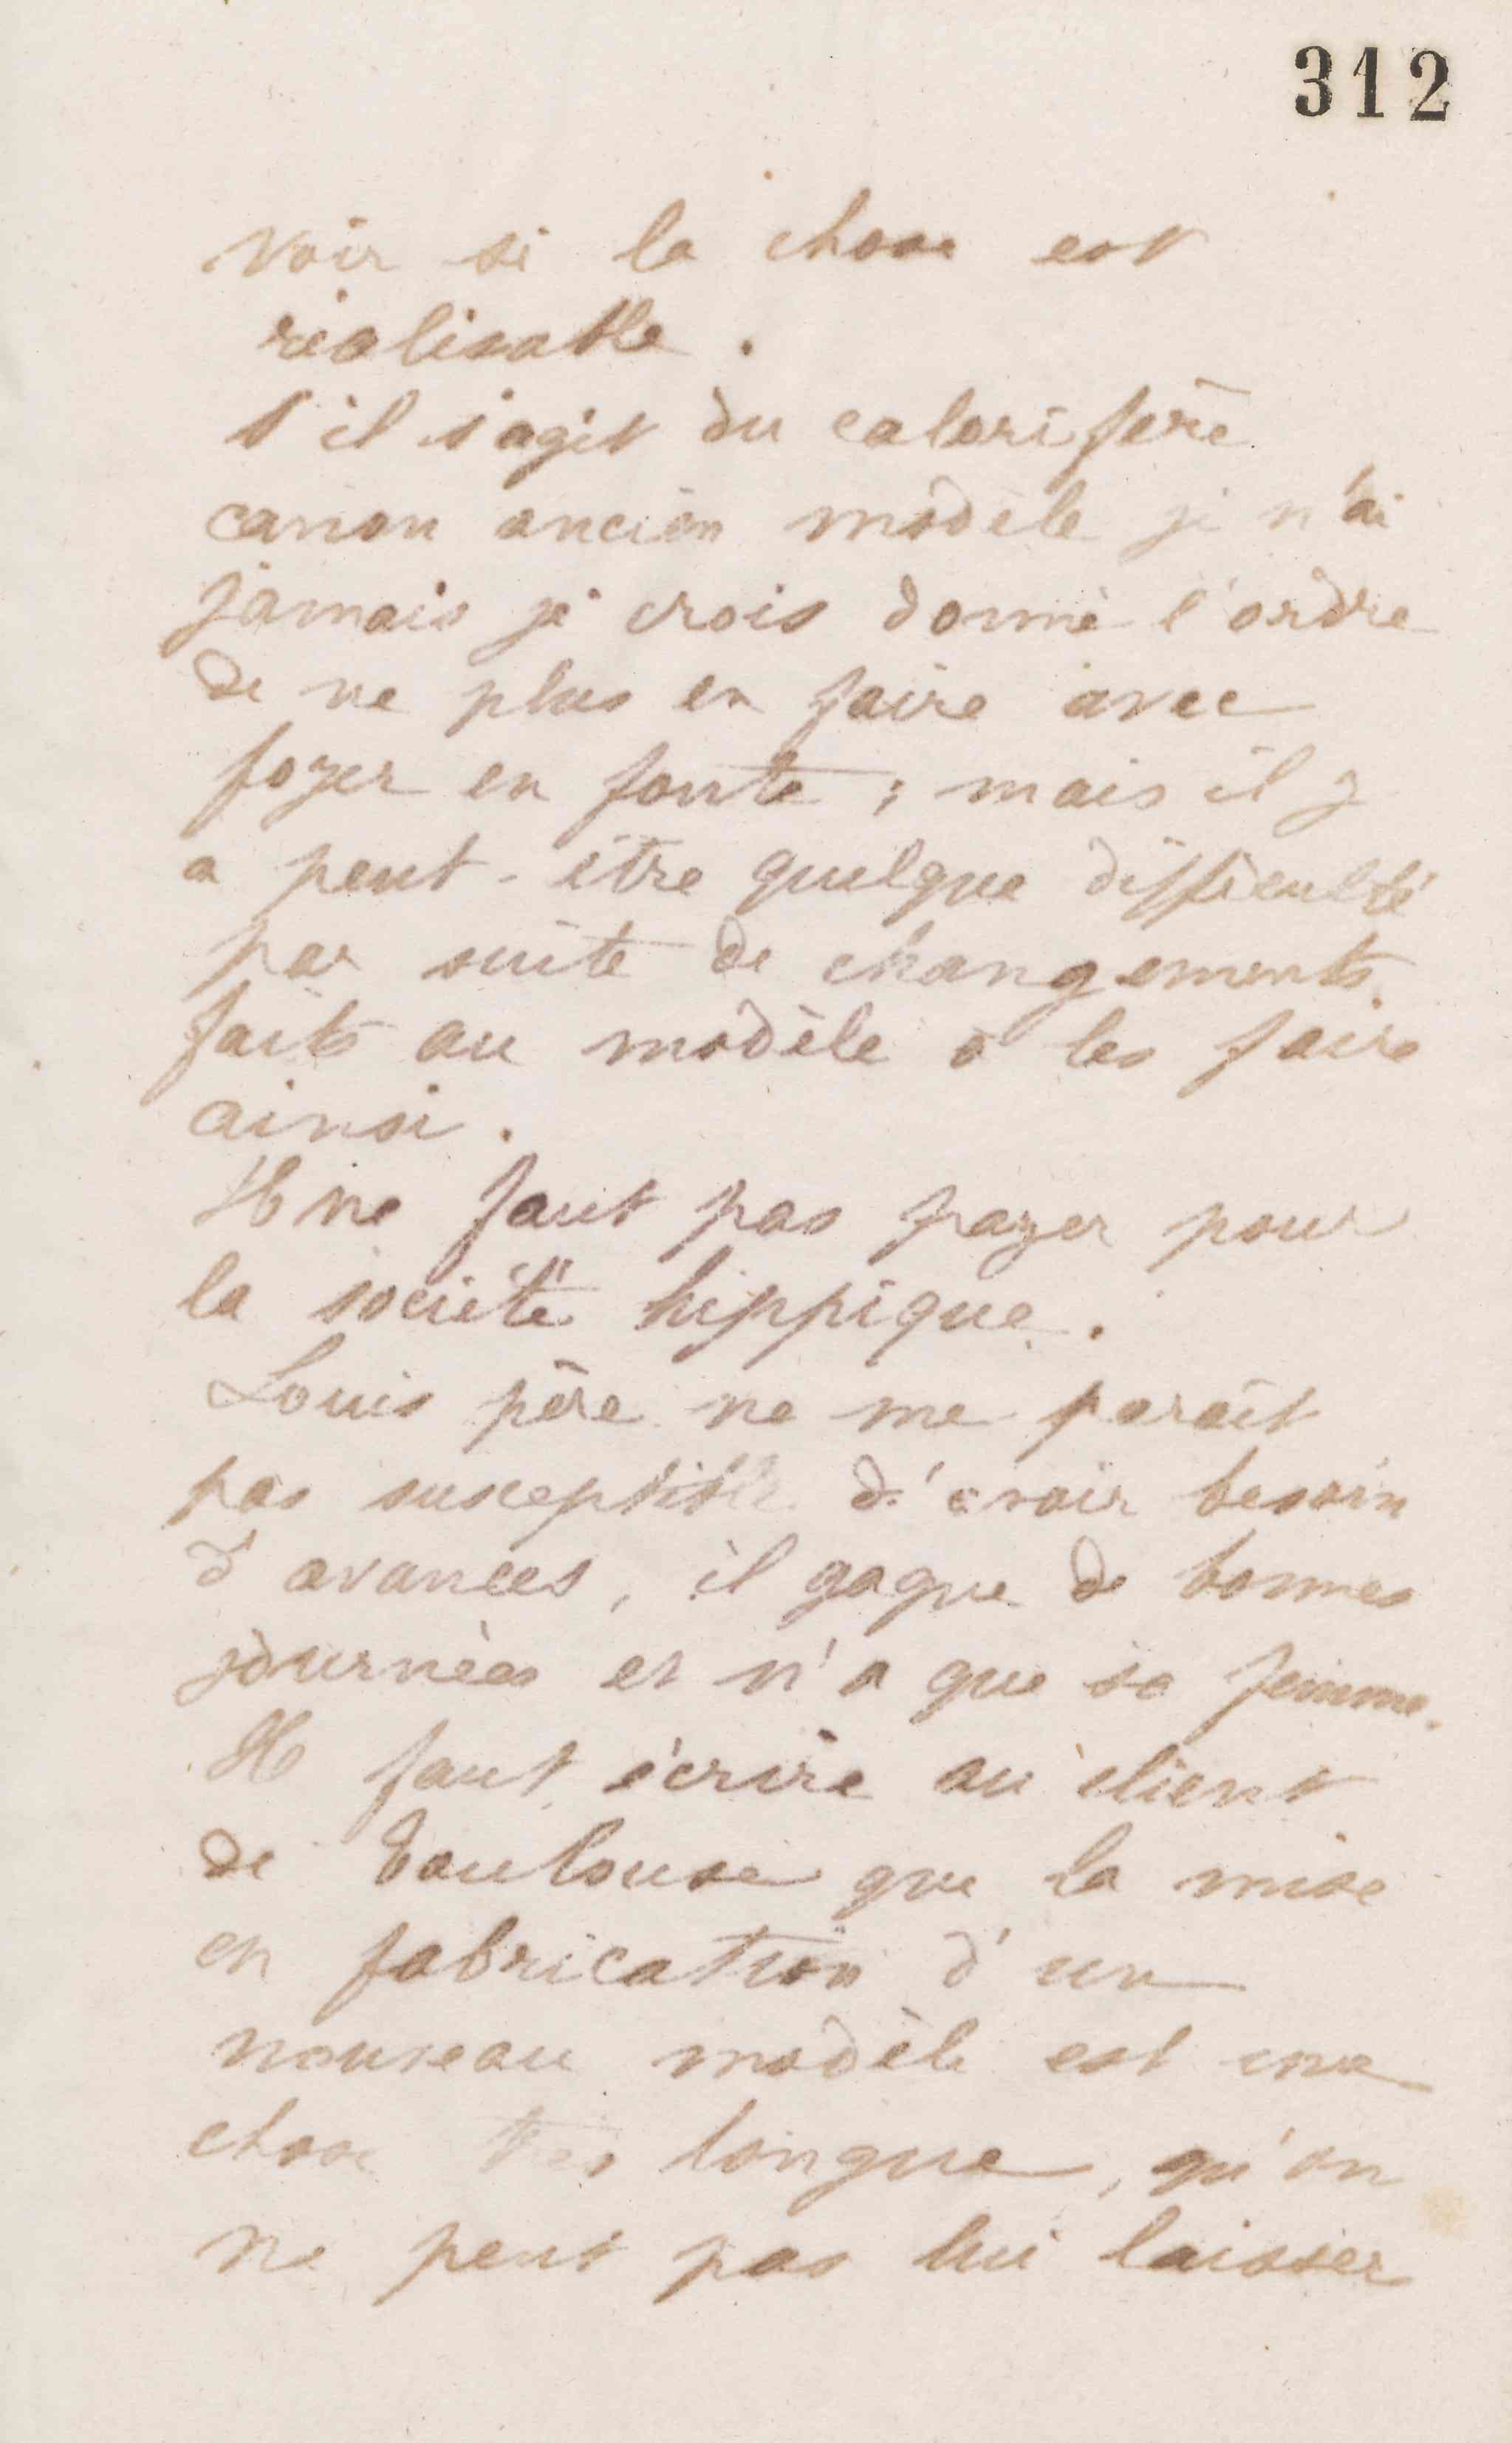 312
voir si la chose est
réalisable.
S'il s'agit du calorifère
canon ancien modèle je n'ai
jamais je crois donné l'ordre
de ne plus en faire avec
foyer en fonte ; mais il y
a peut-être quelque difficulté
par suite de changements
faits au modèle à les faire
ainsi.
Il ne faut pas payer pour
la société hippique.
Louis père ne me paraît
pas susceptible d'avoir besoin
d'avances, il gagne de bonnes
journées et n'a que sa femme.
Il faut écrire au client
de Toulouse que la mise
en fabrication d'un
nouveau modèle est une
chose très longue, qu'on
ne peut pas lui laisser